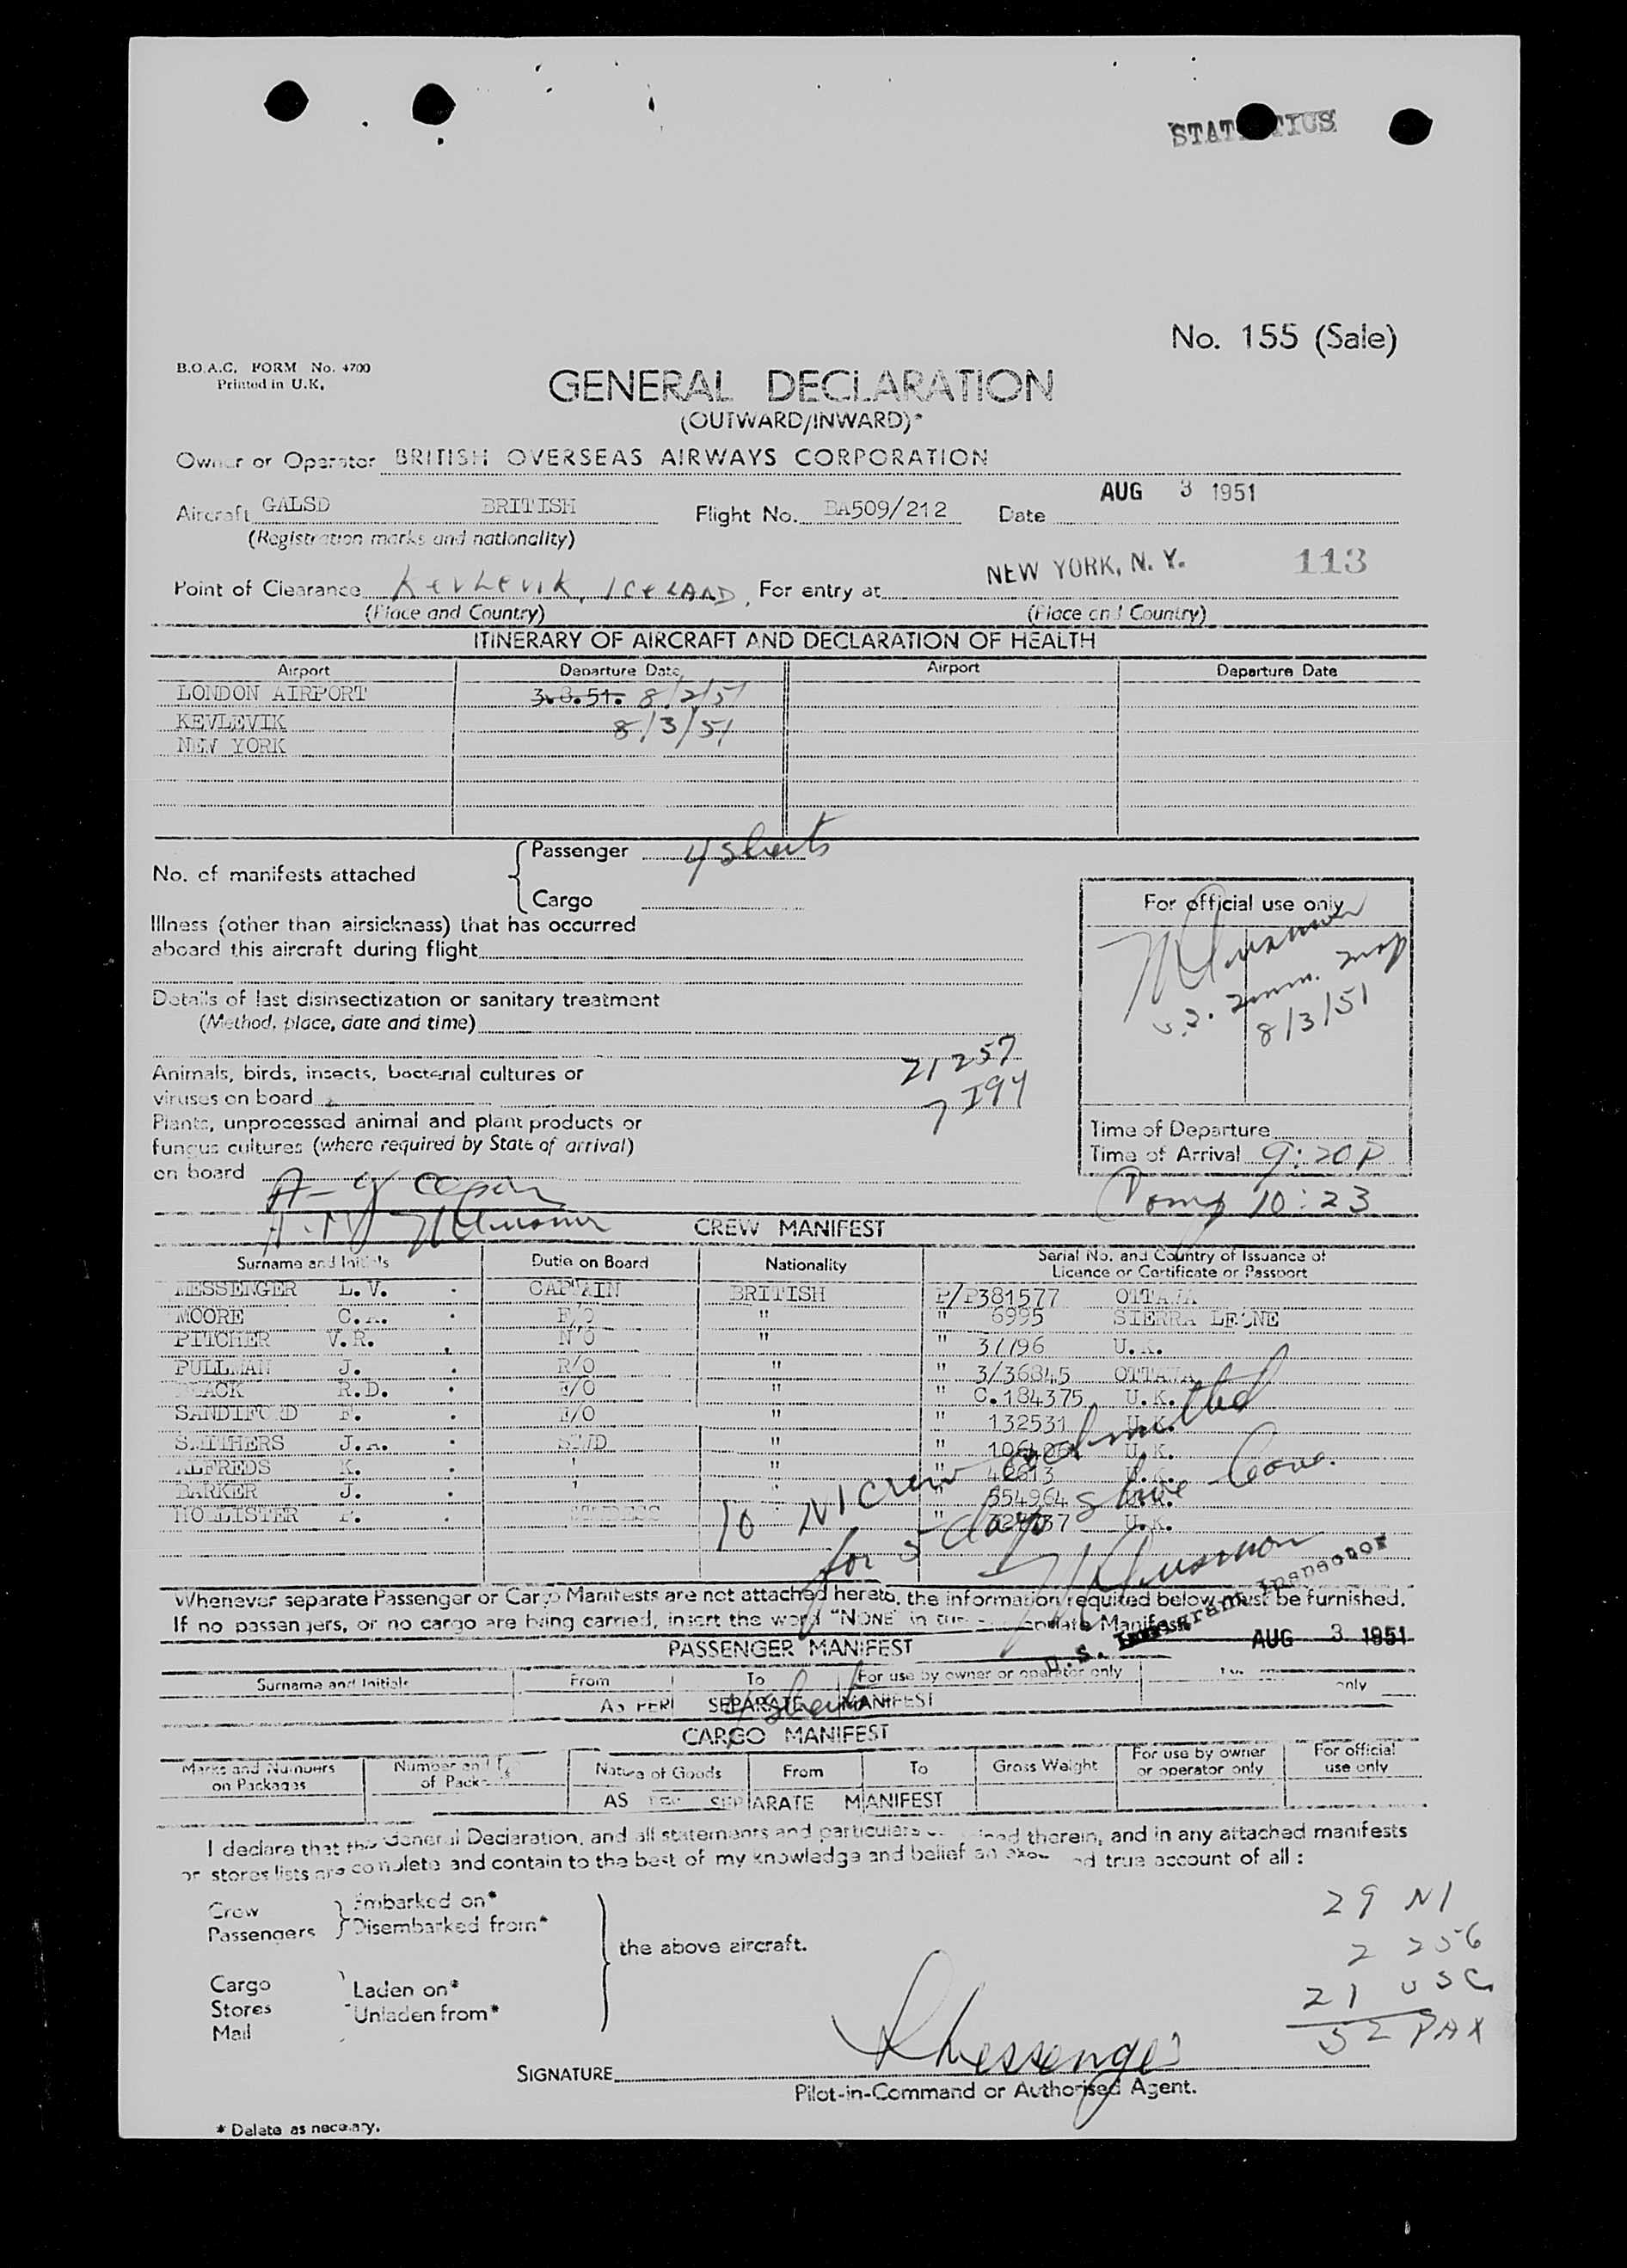 STAT TICS
No. 155 (Sale)
B.O.A.C. FORM No. 4700
Printed in U.K.
GENERAL DECLARATION
(OUTWARD/INWARD)*
Owner or Operator BRITISH OVERSEAS AIRWAYS CORPORATION
Aircraft GALSD BRITISH Flight No. BA509/212 Date AUG 3 1951
(Registration marks and nationality)
Point of Clearance Kevlevik, Iceland, For entry at NEW YORK, N. Y. 113
(Place and Country) (Place and Country)
ITINERARY OF AIRCRAFT AND DECLARATION OF HEALTH
Airport Departure Date Airport Departure Date
LONDON AIRPORT 3.8.51. 8/2/51
KEVLEVIK 8/3/51
NEW YORK
No. of manifests attached
Passenger 4 sheets
Cargo
For official use only
Illness (other than airsickness) that has occurred
aboard this aircraft during flight
8/3/51
Details of last disinsectization or sanitary treatment
(Method, place, date and time)
21 257
Animals, birds, insects, bacterial cultures or
viruses on board
7 I94
Plants, unprocessed animal and plant products or
fungus cultures (where required by State of arrival)
on board
Time of Departure
Time of Arrival 9:20P
10:23
CREW MANIFEST
Surname and Initials Dutie on Board Nationality Serial No. and Country of Issuance of
Licence or Certificate or Passport
MESSENGER L.V. CAPTAIN BRITISH P/P381577 OTTAWA
MOORE C.A. F/O " " 6995 SIERRA LEONE
PITCHER V.R. N/O " " 37796 U.K.
PULLMAN J. R/O " " 3/36845 OTTAWA
BLACK R.D. E/O " " C.184375 U.K.
SANDIFORD F. E/O " " 132531 U.K.
SMITHERS J.A. STWD " " U.K.
ALFREDS K. ' " " U.K.
BARKER J. ' " " 554964 U.K.
HOLLISTER P. STWDESS " U.K.
10 NI crew admitted
for 5 days
Whenever separate Passenger or Cargo Manifests are not attached hereto, the information required below must be furnished.
If no passengers, or no cargo are being carried, insert the word "NONE" in the appropriate Manifest.
U.S. Immigrant Inspector
AUG 3 1951
PASSENGER MANIFEST
Surname and Initials From To For use by owner or operator only only
AS PER SEPARATE MANIFEST
4 sheets
CARGO MANIFEST
Marks and Numbers on Packages Number and of Pack Nature of Goods From To Gross Weight For use by owner or operator only For official use only
AS PER SEPARATE MANIFEST
I declare that this General Declaration, and all statements and particulars therein, and in any attached manifests
or stores lists are complete and contain to the best of my knowledge and belief an true account of all :
Crew Embarked on*
Passengers Disembarked from*
the above aircraft.
Cargo Laden on*
Stores Unladen from*
Mail
29 NI
2 256
21 USC
52 PAX
SIGNATURE LMessenger
Pilot-in-Command or Authorised Agent.
* Delete as necessary.